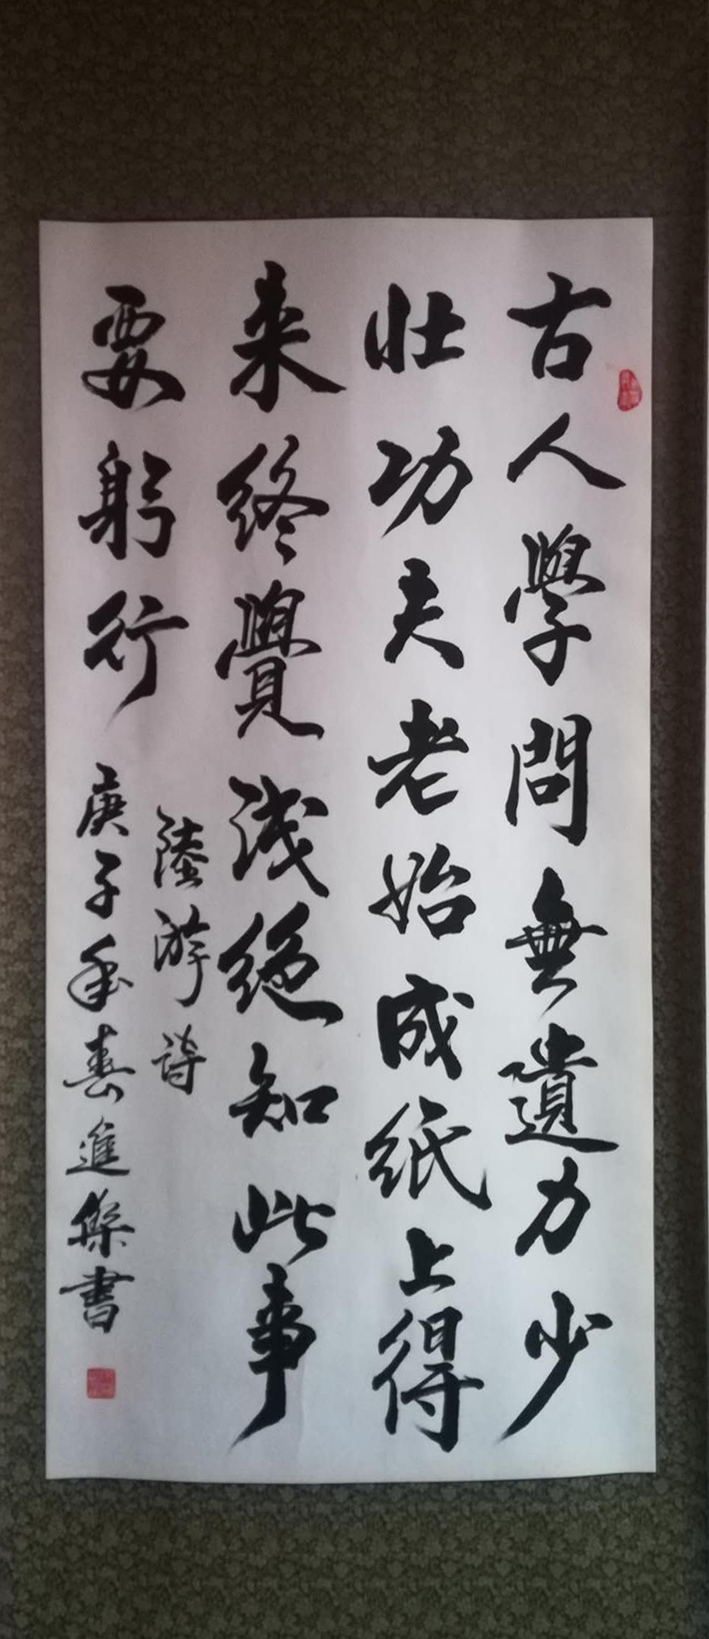 古人學問無遺力少
壮功夫老始成纸上得
来终覺浅绝知此事
要躬行
陸游诗
庚子年春進傑書